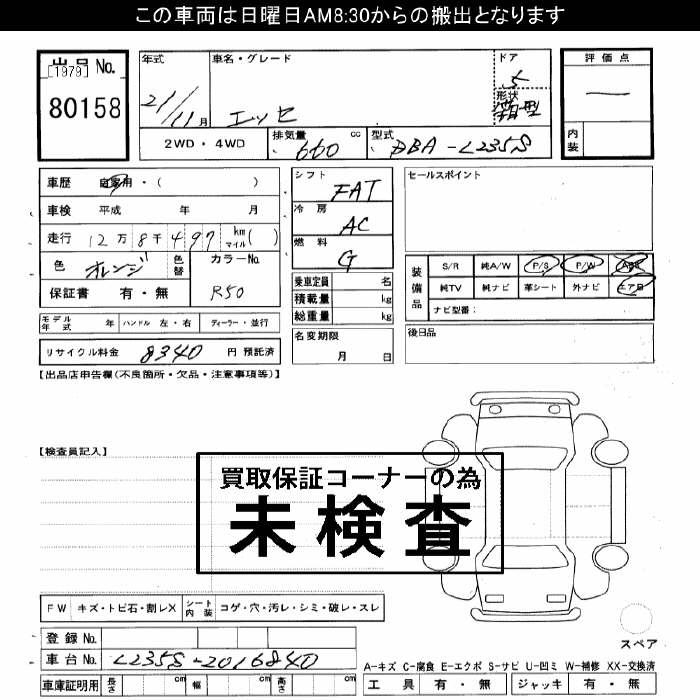 この車両は日曜日AM8:30からの搬出となります
出品 No.
[1979]
80158
年式 車名・グレード ドア 評価点
21/11月 エッセ 5 形状 箱型 —
内装
2WD・4WD 排気量 660 cc 型式 DBA-L235S
車歴 自家用・( )
シフト FAT
セールスポイント
車検 平成 年 月
冷房 AC
走行 12万8千497 km マイル ( )
燃料 G
色 オレンジ 色替 カラーNo. R50
装備品 S/R 純A/W P/S P/W ABS
純TV 純ナビ 革シート 外ナビ エアB
ナビ型番:
保証書 有・無
乗車定員 名
積載量 kg
総重量 kg
モデル年式 年 ハンドル 左・右 ディーラー・並行
名変期限 月 日
後日品
リサイクル料金 8340 円 預託済
【出品店申告欄(不良箇所・欠品・注意事項等)】
【検査員記入】
買取保証コーナーの為
未検査
FW キズ・トビ石・割レX シート内装 コゲ・穴・汚レ・シミ・破レ・スレ
スペア
登録 No.
車台 No. L235S-2016840
A-キズ C-腐食 E-エクボ S-サビ U-凹ミ W-補修 XX-交換済
車庫証明用 長さ cm 幅 cm 高さ cm
工具 有・無 ジャッキ 有・無